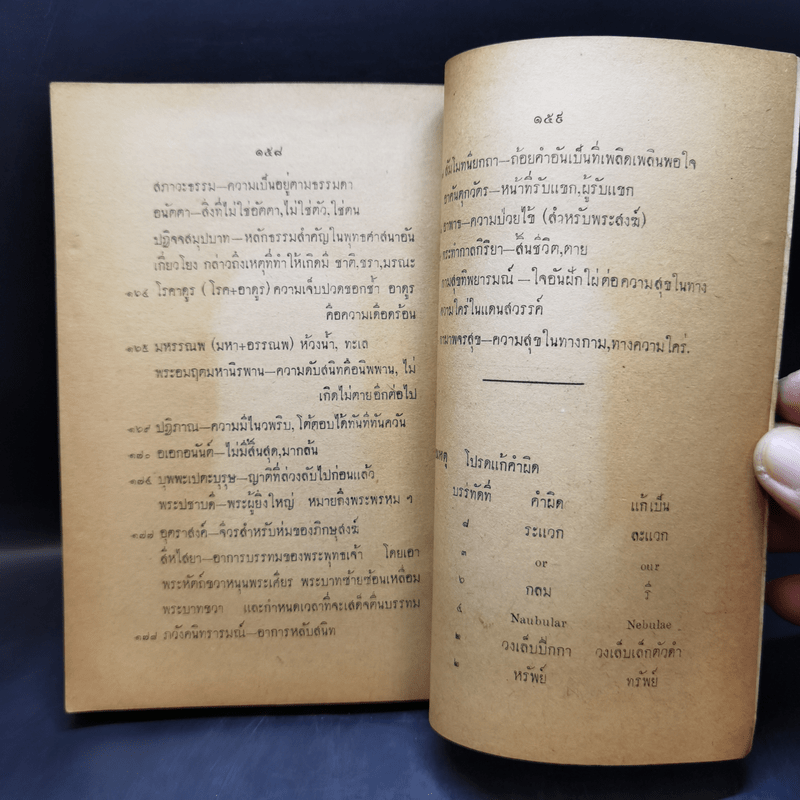 ๑๕๘
สภาวะธรรม—ความเป็นอยู่ตามธรรมดา
อนัตตา—สิ่งที่ไม่ใช่อัตตา,ไม่ใช่ตัว,ใช่ตน
ปฏิจจสมุปบาท—หลักธรรมสำคัญในพุทธศาสนาอัน
เกี่ยวโยง กล่าวถึงเหตุที่ทำให้เกิดมี ชาติ.ชรา,มรณะ
๑๖๔ โรคาดูร (โรค+อาดูร) ความเจ็บปวดชอกช้ำ อาดูร
คือความเดือดร้อน
๑๖๕ มหรรณพ (มหา+อรรณพ) ห้วงน้ำ, ทะเล
พระอมฤตมหานิรพาน—ความดับสนิทคือนิพพาน, ไม่
เกิดไม่ตายอีกต่อไป
๑๖๙ ปฏิภาณ—ความมีไนวพริบ, โต้ตอบได้ทันที่ทันควัน
๑๗๐ อเอกอนันต์—ไม่มีสิ้นสุด,มากล้น
๑๗๕ บุพพะเปตะบุรุษ—ญาติที่ล่วงลับไปก่อนแล้ว
พระปชาบดี—พระผู้ยิ่งใหญ่ หมายถึงพระพรหม ฯ
๑๗๗ อุตราสงค์—จีวรสำหรับห่มของภิกษุสงฆ์
สีหไสยา—อาการบรรทมของพระพุทธเจ้า โดยเอา
พระหัตถ์ขวาหนุนพระเศียร พระบาทซ้ายซ้อนเหลื่อม
พระบาทขวา และกำหนดเวลาที่จะเสด็จตื่นบรรทม
๑๗๘ ภวังคนิทรารมณ์—อาการหลับสนิท
๑๕๙
—ถ้อยคำอันเป็นที่เพลิดเพลินพอใจ
—หน้าที่รับแขก,ผู้รับแขก
—ความป่วยไข้ (สำหรับพระสงฆ์)
กระทำกาลกิริยา—สิ้นชีวิต,ตาย
—ใจอันฝักใฝ่ต่อความสุขในทาง
ความใคร่ในแดนสวรรค์
—ความสุขในทางกาม,ทางความใคร่.
โปรดแก้คำผิด
บรรทัดที่ คำผิด แก้เป็น
๘ ระแวก ละแวก
๓ or our
๖ กลม รี
๕ Naubular Nebulae
๒ วงเล็บปีกกา วงเล็บเล็กตัวดำ
๒ หรัพย์ ทรัพย์